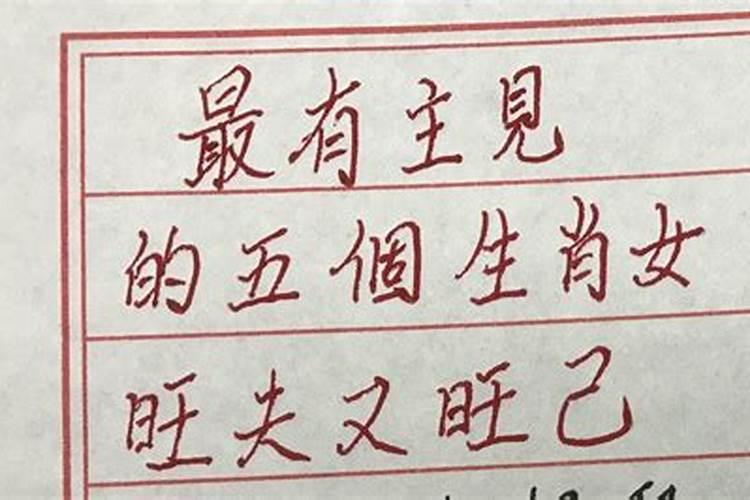 最有主見
的五個生肖女
旺夫又旺己